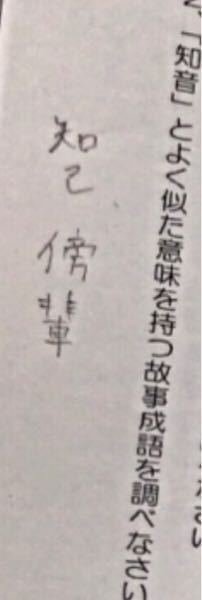 「知音」とよく似た意味を持つ故事成語を調べなさい
知己、傍輩